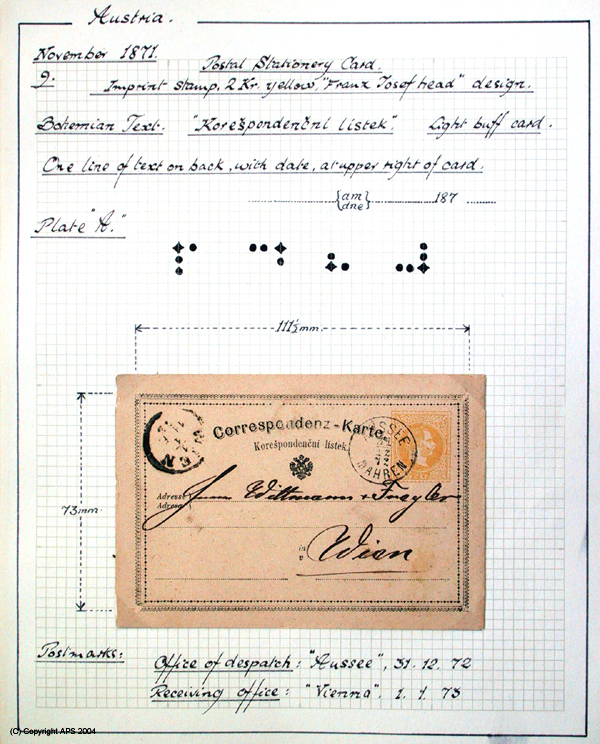 Austria.
November 1871.
Postal Stationery Card.
9.
Imprint stamp, 2 Kr. yellow, "Franz Josef head" design.
Bohemian Text. "Korešpondenční listek". Light buff card.
One line of text on back, with date, at upper right of card.
{am dne} 187
Plate "A."
111½mm.
73mm
WIEN
Correspondenz-Karte.
Korešpondenční listek.
AUSSEE
MÄHREN
Adresse
Adresa
Herrn Wittmann +
in
v
Wien
Postmarks:
Office of despatch: "Aussee", 31. 12. 72
Receiving office: "Vienna". 1. 1. 73
(C) Copyright APS 2004